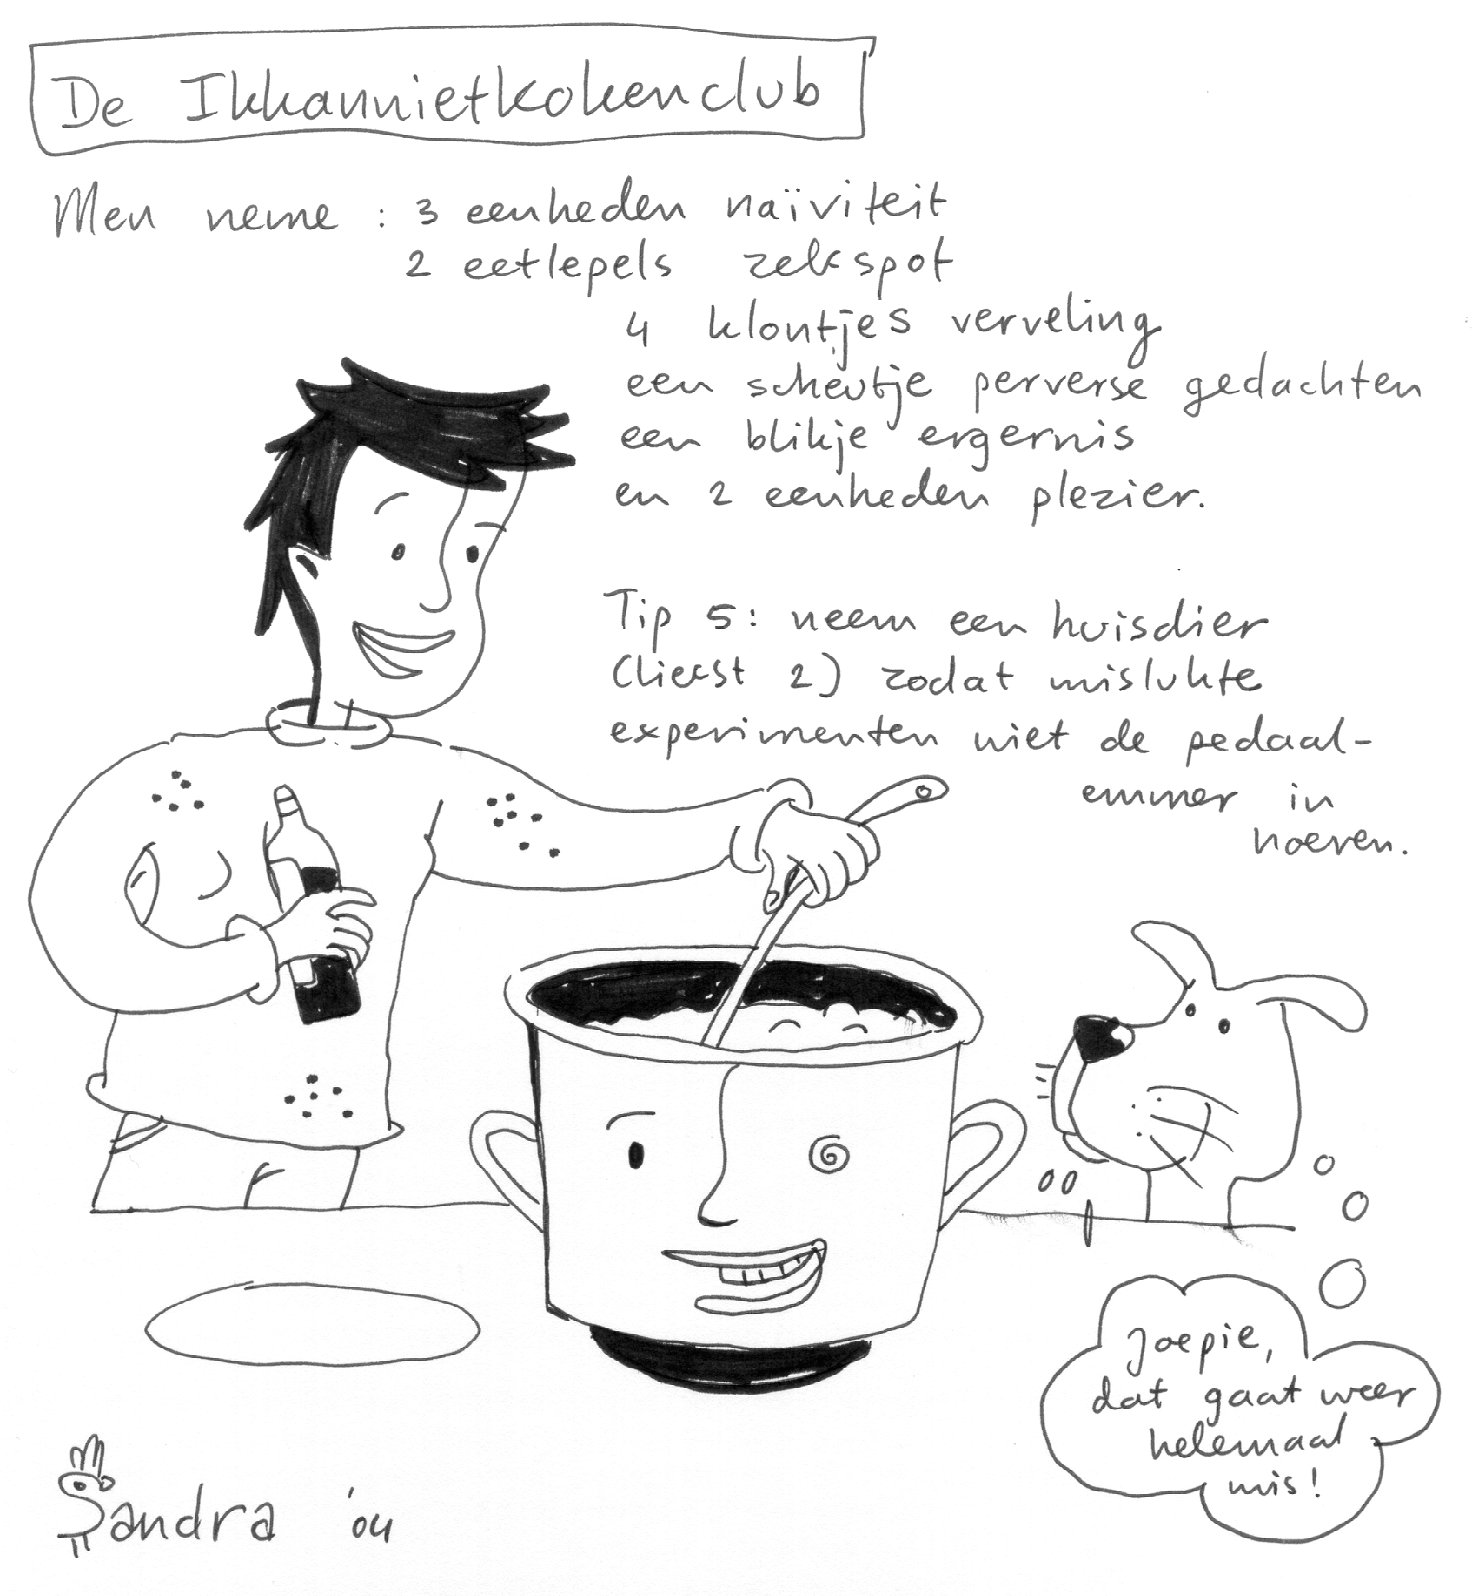 De Ikkannietkokenclub
Men neme : 3 eenheden naïviteit
2 eetlepels zelfspot
4 klontjes verveling
een scheutje perverse gedachten
een blikje ergernis
en 2 eenheden plezier.
Tip 5: neem een huisdier
(liefst 2) zodat mislukte
experimenten niet de pedaal-
emmer in
hoeven.
Joepie,
dat gaat weer
helemaal
mis!
Sandra '04